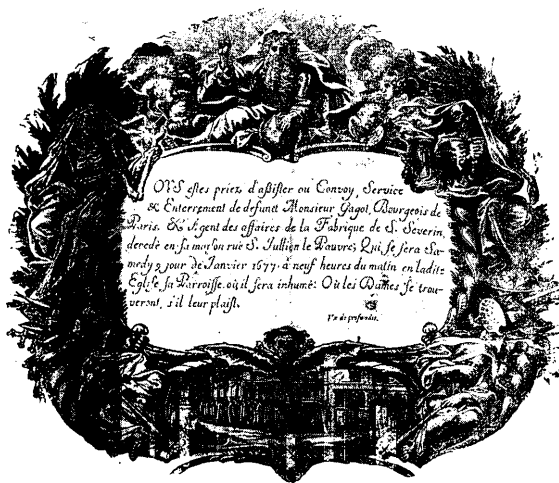 OVS estes priez d'assister au Convoy, Service
& Enterrement de defunct Monsieur Gagot, Bourgeois de
Paris, & Agent des affaires de la Fabrique de S. Severin,
decedé en sa maison ruë S. Jullien le Pauvre; Qui se fera Sa-
medy 9 jour de Janvier 1677. à neuf heures du matin en ladite
Eglise sa Parroisse, où il sera inhumé: Où les Dames se trou-
veront, s'il leur plaist.
Vn de profundis.